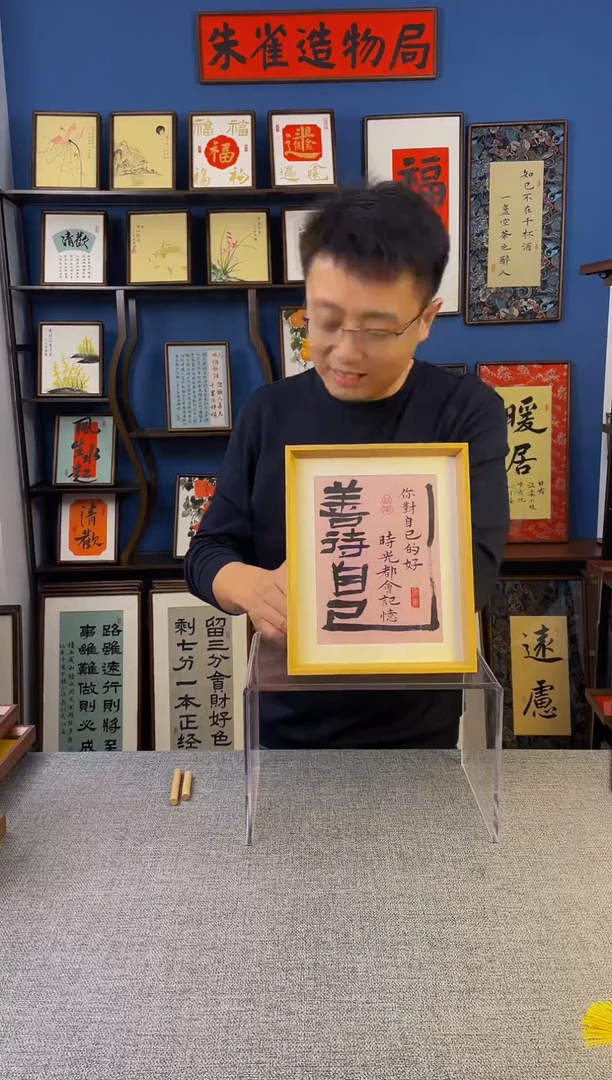 朱雀造物局
福
福
福
福
福
清歡
福
知己不在千杯酒
一盞空茶也醉人
風生水起
清歡
暖居
善待自己
你對自己的好
時光都會記憶
路雖遠行則將至
事雖難做則必成
留三分貪財好色
剩七分一本正經
遠慮